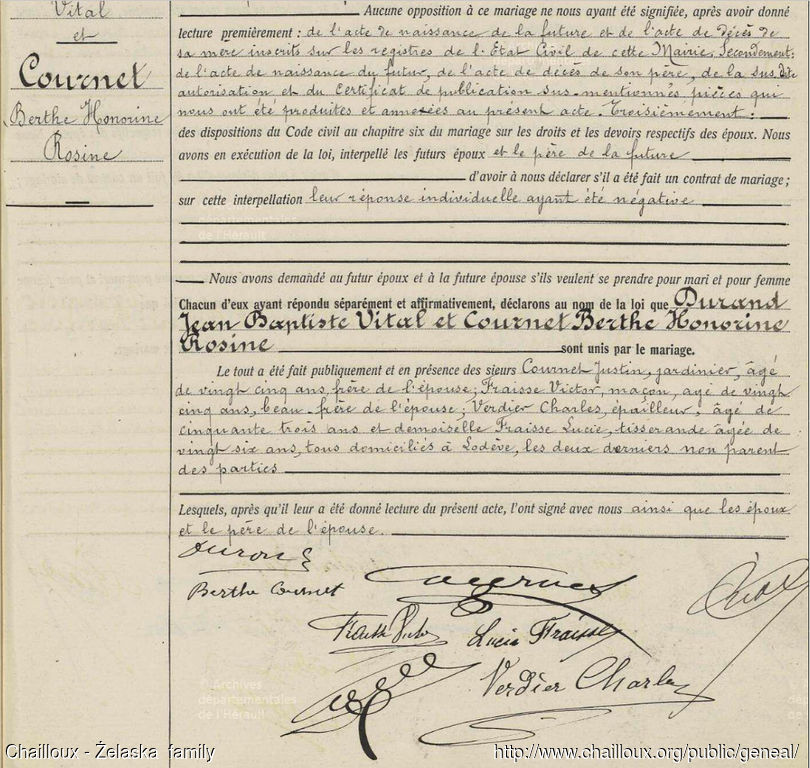 Vital
et
Cournet
Berthe Honorine
Rosine
Aucune opposition à ce mariage ne nous ayant été signifiée, après avoir donné
lecture premièrement : de l'acte de naissance de la future et de l'acte de décès de
sa mère inscrits sur les registres de l'Etat Civil de cette Mairie, Secondement:
de l'acte de naissance du futur, de l'acte de décès de son père, de la sus-dite
autorisation et du Certificat de publication sus-mentionnés pièces qui
nous ont été produites et annexées au présent acte. Troisièmement :
des dispositions du Code civil au chapitre six du mariage sur les droits et les devoirs respectifs des époux. Nous
avons en exécution de la loi, interpellé les futurs époux et le père de la future
d'avoir à nous déclarer s'il a été fait un contrat de mariage ;
sur cette interpellation leur réponse individuelle ayant été négative
Nous avons demandé au futur époux et à la future épouse s'ils veulent se prendre pour mari et pour femme
Chacun d'eux ayant répondu séparément et affirmativement, déclarons au nom de la loi que Durand
Jean Baptiste Vital et Cournet Berthe Honorine
Rosine sont unis par le mariage.
Le tout a été fait publiquement et en présence des sieurs Cournet Justin, jardinier, âgé
de vingt cinq ans, frère de l'épouse; Fraisse Victor, maçon, agé de vingt
cinq ans, beau-frère de l'épouse; Verdier Charles, épailleur, âgé de
cinquante trois ans et demoiselle Fraisse Lucie, tisserande âgée de
vingt six ans, tous domiciliés à Lodève, les deux derniers non parent
des parties
Lesquels, après qu'il leur a été donné lecture du présent acte, l'ont signé avec nous ainsi que les époux
et le père de l'épouse.
Durand
Berthe Cournet
Lucie Fraisse
Verdier Charles
© Archives
départementales
de l'Hérault
Chailloux - Żelaska family
http://www.chailloux.org/public/geneal/